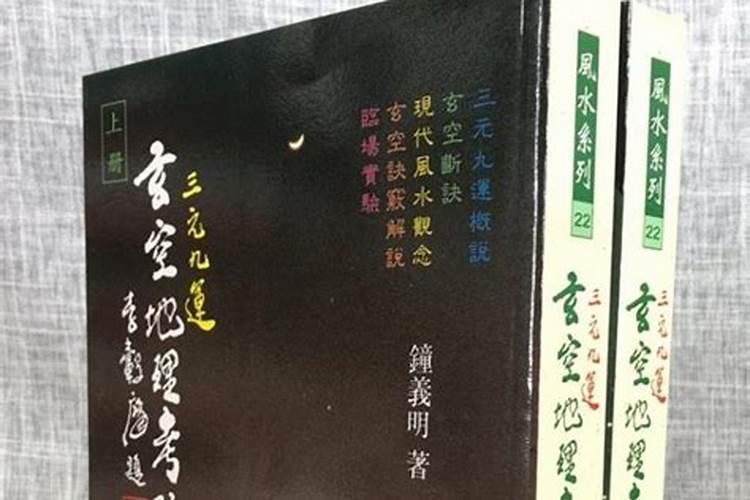 三元九運概說
玄空斷訣
現代風水觀念
玄空訣竅解說
臨場實驗
鐘義明 著
上冊
三元九運
玄空地理考
李穀摩題
風水系列
22
三元九運
玄空地理
風水系列
22
三元九運
玄空地理